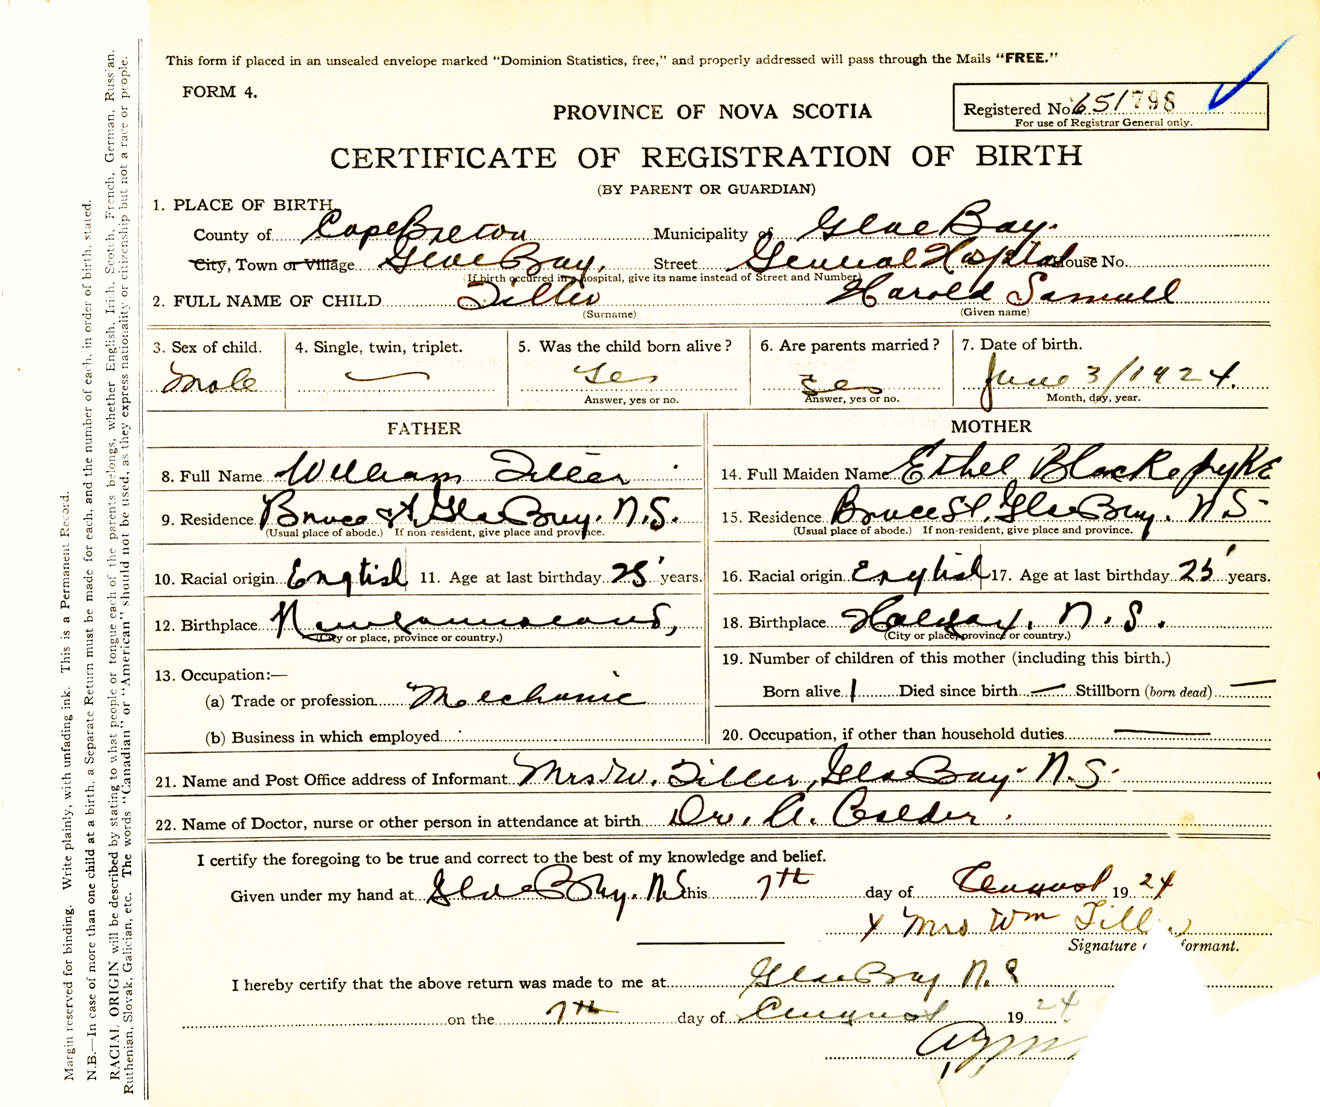 This form if placed in an unsealed envelope marked "Dominion Statistics, free," and properly addressed will pass through the Mails "FREE."
FORM 4.
PROVINCE OF NOVA SCOTIA
Registered No. 651798
For use of Registrar General only.
CERTIFICATE OF REGISTRATION OF BIRTH
(BY PARENT OR GUARDIAN)
1. PLACE OF BIRTH
County of Cape Breton Municipality of Glace Bay.
City, Town or Village Glace Bay, Street General Hospital House No.
(If birth occurred in a hospital, give its name instead of Street and Number)
2. FULL NAME OF CHILD Tiller Harold Samuell
(Surname) (Given name)
3. Sex of child. 4. Single, twin, triplet. 5. Was the child born alive? 6. Are parents married? 7. Date of birth.
Male — Yes Yes June 3/1924.
Answer, yes or no. Answer, yes or no. Month, day, year.
FATHER MOTHER
8. Full Name William Tiller 14. Full Maiden Name Ethel Blackepyke
9. Residence Bruce St, Glace Bay. N.S. 15. Residence Bruce St, Glace Bay. N.S
(Usual place of abode.) If non-resident, give place and province. (Usual place of abode.) If non-resident, give place and province.
10. Racial origin English 11. Age at last birthday 25 years. 16. Racial origin English 17. Age at last birthday 25 years.
12. Birthplace Newfoundland, 18. Birthplace Halifax, N.S.
(City or place, province or country.) (City or place, province or country.)
13. Occupation:— 19. Number of children of this mother (including this birth.)
(a) Trade or profession Mechanic Born alive 1 Died since birth — Stillborn (born dead) —
(b) Business in which employed 20. Occupation, if other than household duties —
21. Name and Post Office address of Informant Mrs. W. Tiller, Glace Bay. N.S.
22. Name of Doctor, nurse or other person in attendance at birth Dr. A. Calder.
I certify the foregoing to be true and correct to the best of my knowledge and belief.
Given under my hand at Glace Bay. N.S this 7th day of August 1924
x Mrs Wm Till
Signature of Informant.
I hereby certify that the above return was made to me at Glace Bay N.S
on the 7th day of August 1924
Margin reserved for binding. Write plainly, with unfading ink. This is a Permanent Record.
N.B.—In case of more than one child at a birth, a Separate Return must be made for each, and the number of each, in order of birth, stated.
RACIAL ORIGIN will be described by stating to what people or tongue each of the parents belongs, whether English, Irish, Scotch, French, German, Russian,
Ruthenian, Slovak, Galician, etc. The words "Canadian" or "American" should not be used, as they express nationality or citizenship but not a race or people.